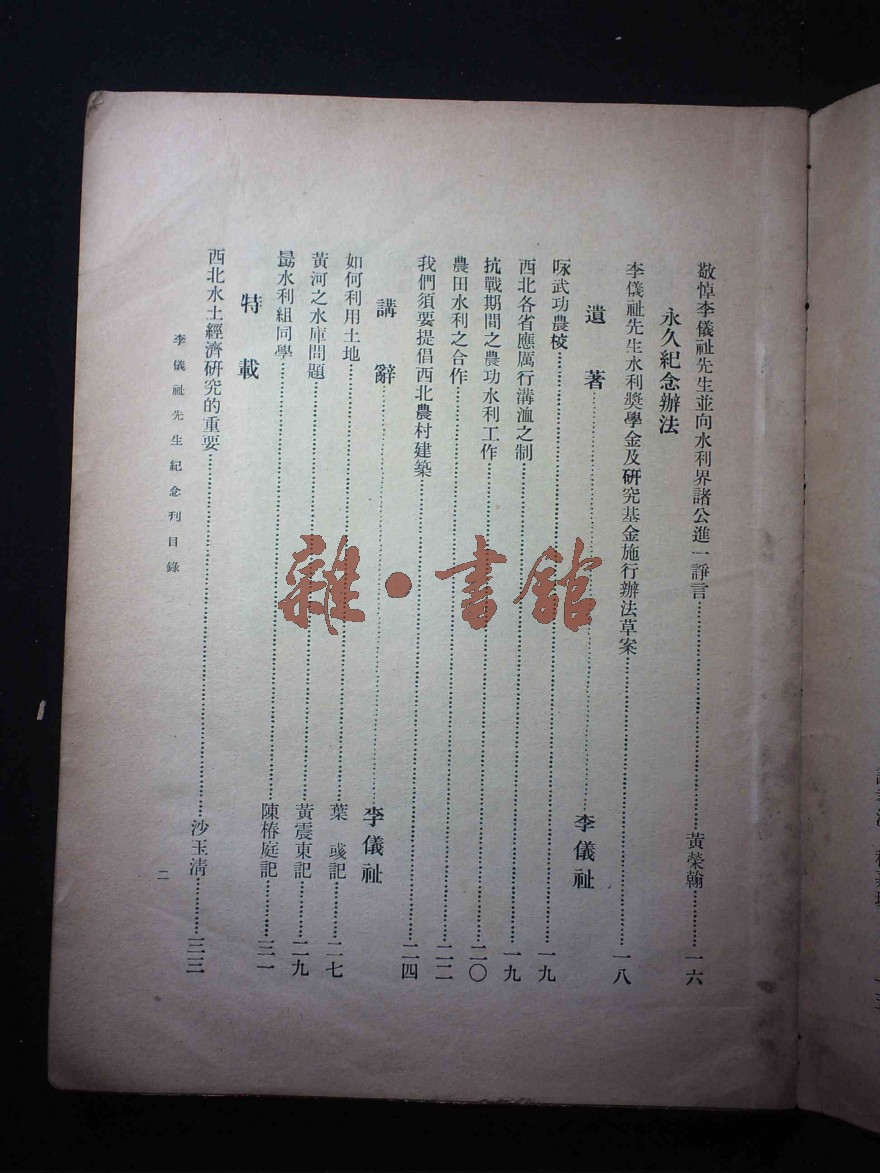 敬悼李儀祉先生並向水利界諸公進一諍言……黃榮翰……一六
永久紀念辦法
李儀祉先生水利獎學金及研究基金施行辦法草案……一八
遺著……李儀祉
咏武功農校……一九
西北各省應厲行溝洫之制……一九
抗戰期間之農功水利工作……二〇
農田水利之合作……二二
我們須要提倡西北農村建築……二四
講辭……李儀祉
如何利用土地……葉彧記……二七
黃河之水庫問題……黃震東記……二九
勗水利組同學……陳椿庭記……三一
特載
西北水土經濟研究的重要……沙玉清……三三
李儀祉先生紀念刊目錄
二
雜·書館